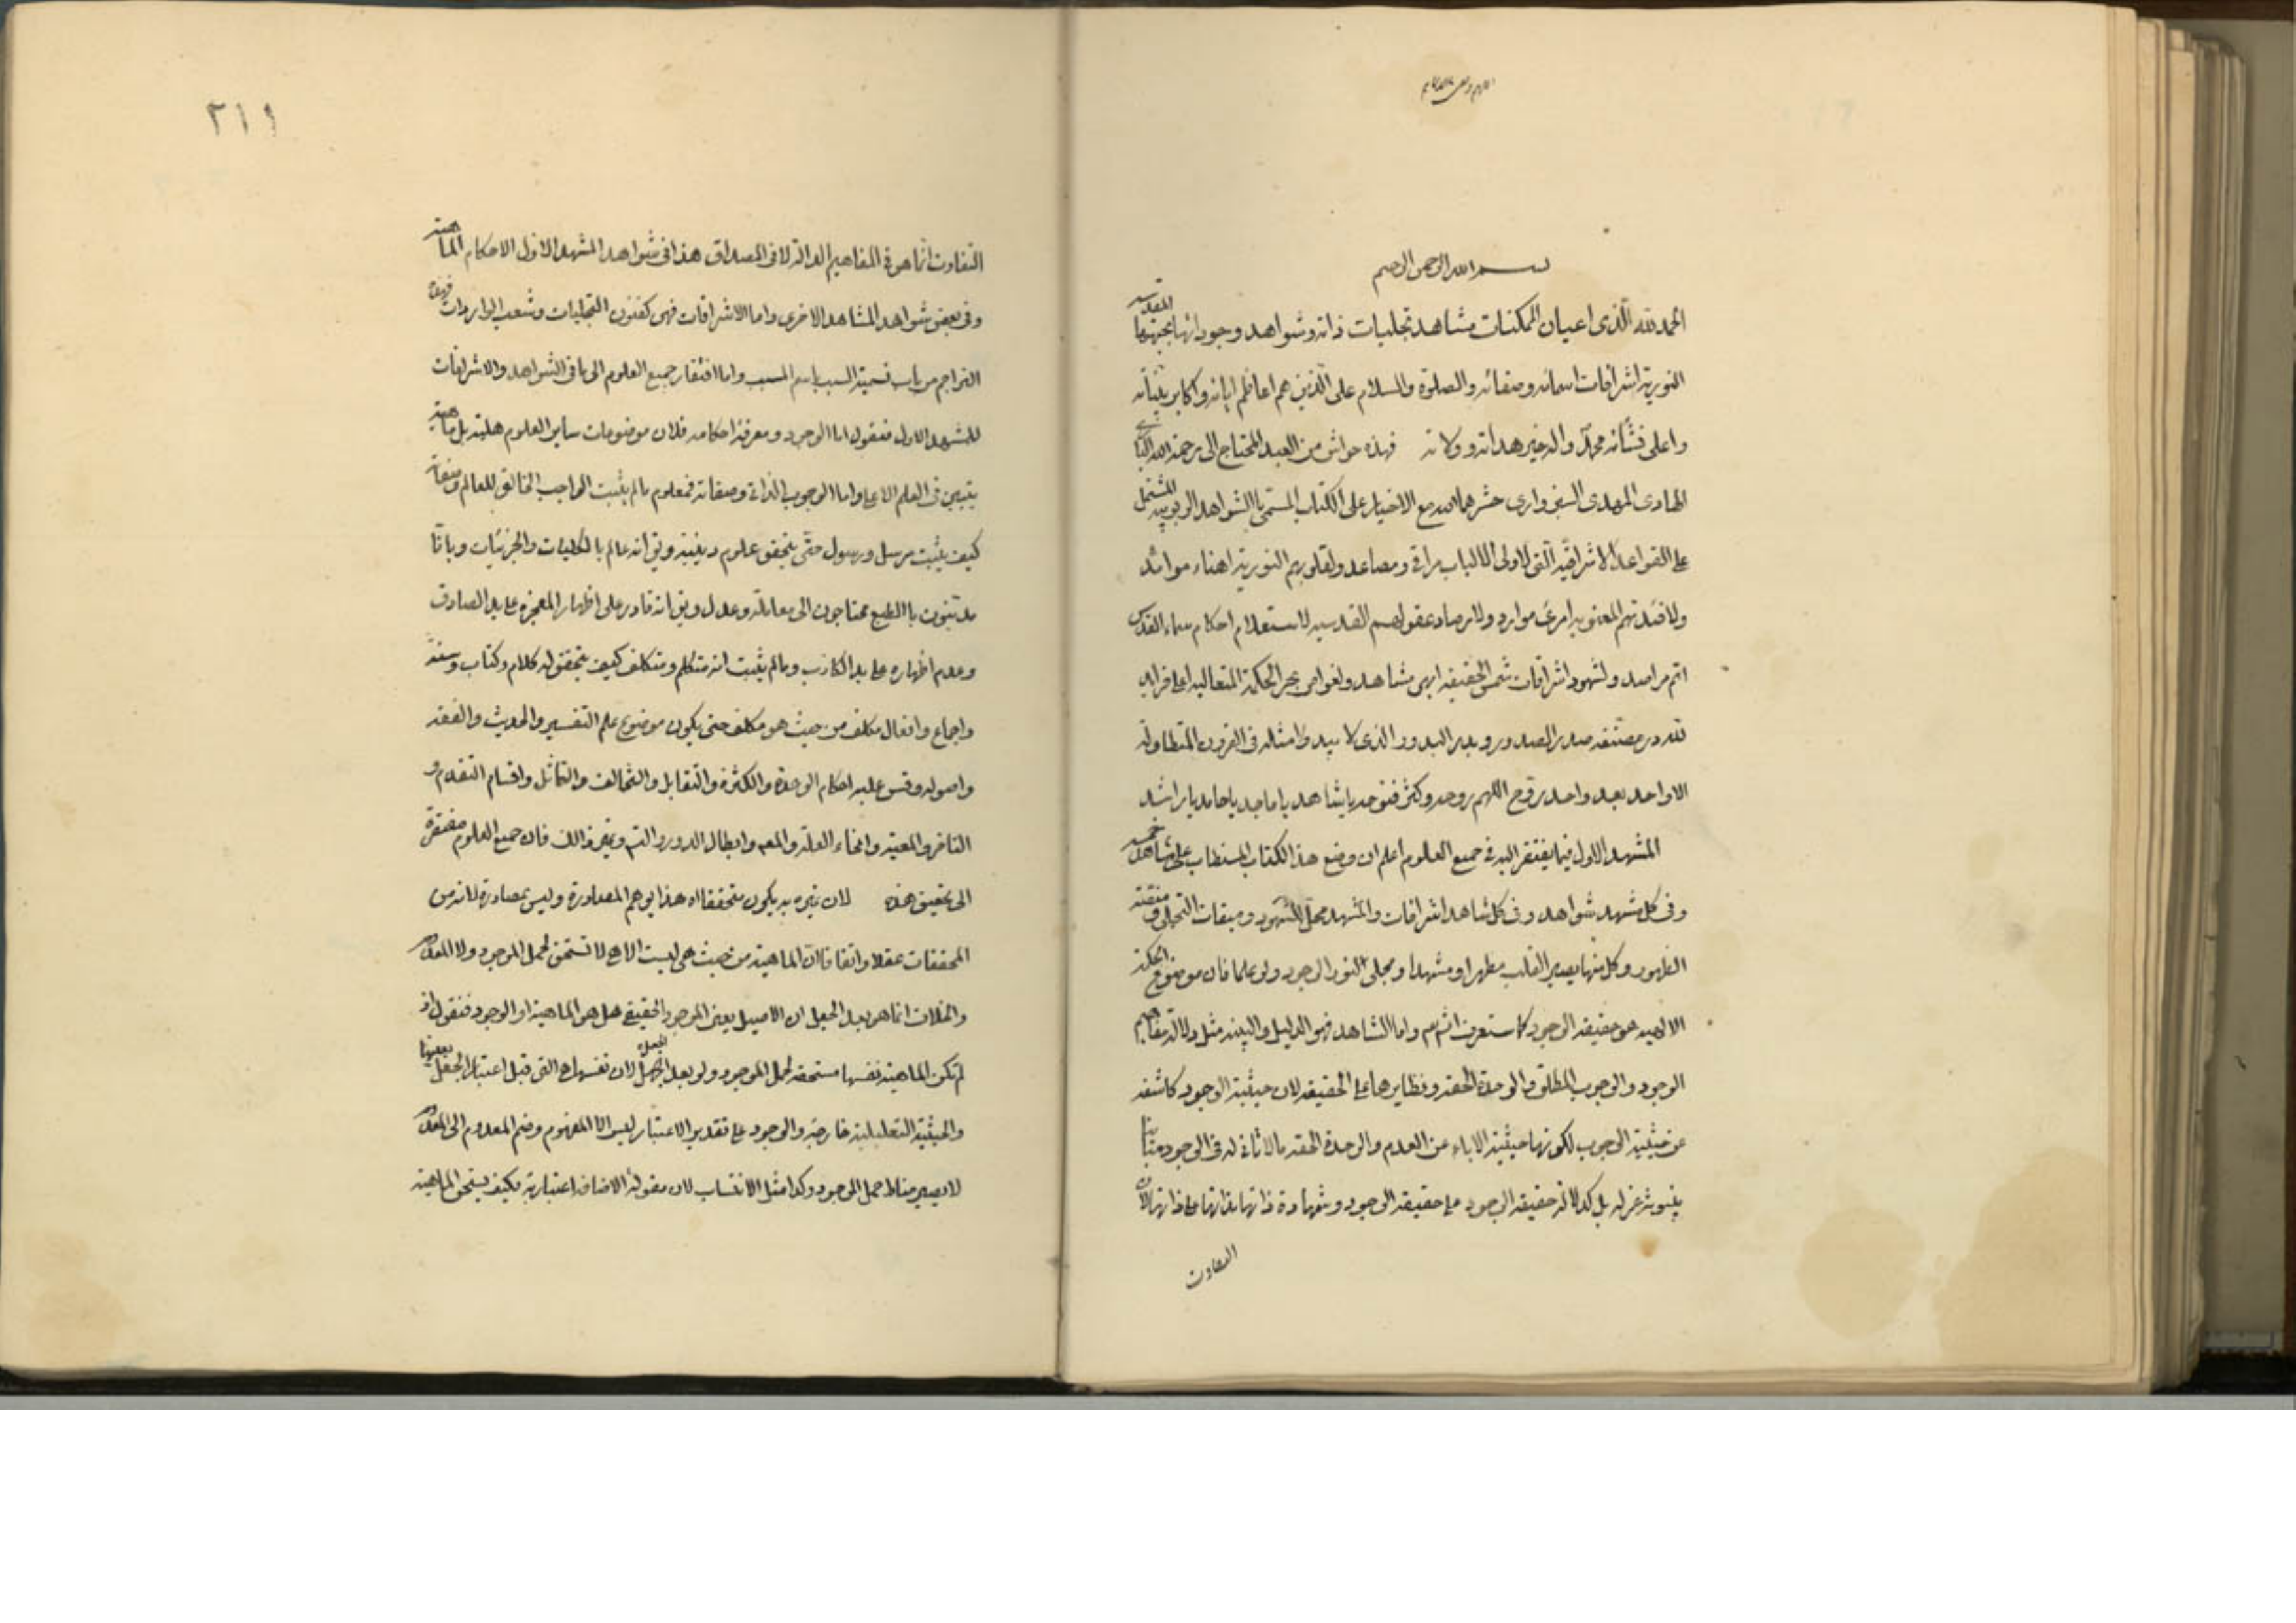 بسم الله الرحمن الرحيم
الحمد لله الذى اعيان الممكنات مشاهد تجليات ذاته وشواهد وجود انها بجهتها المقدسه
النورية اشراقات اسمائه وصفاته والصلوة والسلام على الذين هم اعاظم اياته واكابر بيناته
واعلى نشأته محمد واله خير هداته وولاته فهذه حواش من العبد المحتاج الى رحمة الله البارى
الهادى المهدى السبزوارى حشرهما الله مع الاخيار على الكتاب المستمى بالشواهد الربوبيه المشتمل
على القواعد الاشراقية التى لاولى الالباب مراقى ومصاعد ولقلوبهم النورية اهناء موائد
ولافئدتهم المعنويه امرئ موارد ولارصاد عقولهم القدسيه لاستعلام احكام سماء القدس
اتم مراصد ولشهود اشراقات شمس الحقيقه ابهى مشاهد ولغواص بحر الحكمة المتعاليه اعلى فرايد
لله در مصنفه صدر الصدور وبدر البدور الذى لا يبدو امثاله فى القرون المتطاوله
الا واحد بعد واحد روح اللهم روحه وكثر فتوحه يا شاهد يا ماجد يا حامد يا راشد
المشهد الاول فيما يفتقر اليه فى جميع العلوم اعلم ان وضع هذا الكتاب المستطاب على مشاهد خمسه
وفى كل مشهد شواهد وفى كل شاهد اشراقات والمشهد محل الشهود وميقات التجلى و
الظهور وكل منها يصير القلب مظهرا ومشهدا ومجلى النور الوجود ولو علما فان موضوع الحكمة
الالهيه هو حقيقة الوجود كما ستعرف انش تم واما الشاهد فهو الدليل والبينه مثل دلالة مفاهيم
الوجود والوجوب المطلق والوحدة الحقه ونظايرها على الحقيقه لان حيثية الوجود كاشفه
عن حيثية الوجوب لكونها حيثية الاباء عن العدم والوحدة الحقه ما لا ثانى له فى الوجود مباينا
بينونة عزله بل كدلالة حقيقة الوجود على حقيقة الوجود وشهادة ذاتها بذاتها على ذاتها لان
التفاوت
٣١٩
التفاوت انما هو فى المفاهيم الدالة لا فى المصداق هذا فى شواهد المشهد الاول الاحكام الماهية
وفى بعض شواهد المشاهد الاخرى واما الاشراقات فهى كفنون التجليات وشعب الواردات
التراجم من باب تسمية السبب باسم المسبب واما افتقار جميع العلوم الى ما فى الشواهد والاشراقات
للمشهد الاول فنقول اما الوجود ومعرفة احكامه فلان موضوعات ساير العلوم هلية بل ماهية
يتبين فى العلم الاعلى واما الوجوب الذاتى وصفاته فمعلوم ما لم يثبت الواجب الخالق للعالم وصفاته
كيف يثبت مرسل ورسول حتى يتحقق علوم دينية ويق انه عالم بالكليات والجزئيات وباننا
مدنيون بالطبع محتاجون الى معاملة وعدل ويق انه قادر على اظهار المعجزة على يد الصادق
وعدم اظهاره على يد الكاذب وما لم يثبت انه متكلم ومتكلف كيف يتحقق له كلام وكتاب وسنة
واجماع وافعال مكلف من حيث هو مكلف حتى يكون موضوع علم التفسير والحديث والفقه
واصوله وقس عليه احكام الوحدة والكثرة والتقابل والتخالف والتماثل واقسام التقدم و
التاخر والمعية وانحاء العلة والمعم وابطال الدور والتس وغير ذالك فان جميع العلوم مفتقرة
الى تحقيق هذه لان غيره به يكون متحققا اه هذا يوهم المصادرة وليس بمصادرة لانه من
المحققات عقلا واتفاقا ان الماهية من حيث هى ليست الا هى لا تستحق لحمل الموجود ولا المعدوم
والخلاف انما هو بعد الجعل ان الاصيل يعنى الموجود الحقيقى هل هو الماهية او الوجود فنقول اذ
لم تكن الماهية نفسها مستحقه لحمل الموجود ولو بعد الجعل لان نفسها هى التى قبل اعتبار الجعل بعينها
والحيثية التعليلية خارجة والوجود على تقدير الاعتبار ليس الا المفهوم وضم المعدوم الى المعدوم
لا يصير مناط حمل الموجود وكذا مثل الانتساب لان مقولة الاضافه اعتبارية فكيف يستحق الماهية